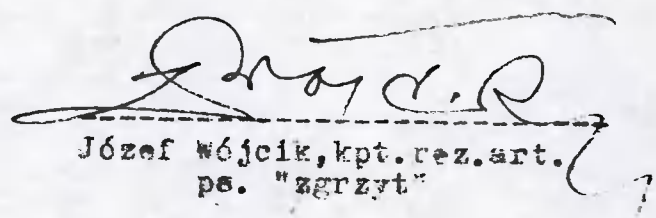 Józef Wójcik,kpt.rez.art.
ps. "zgrzyt"